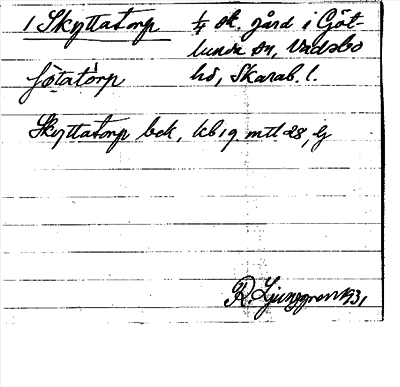 1 Skyttatorp ¼ sk. gård i Göt-
lunda sn, Vadsbo
hd, Skarab. l.
Skyttatorp bek, kb 19 mtl 28, G
R. Ljunggren 1931